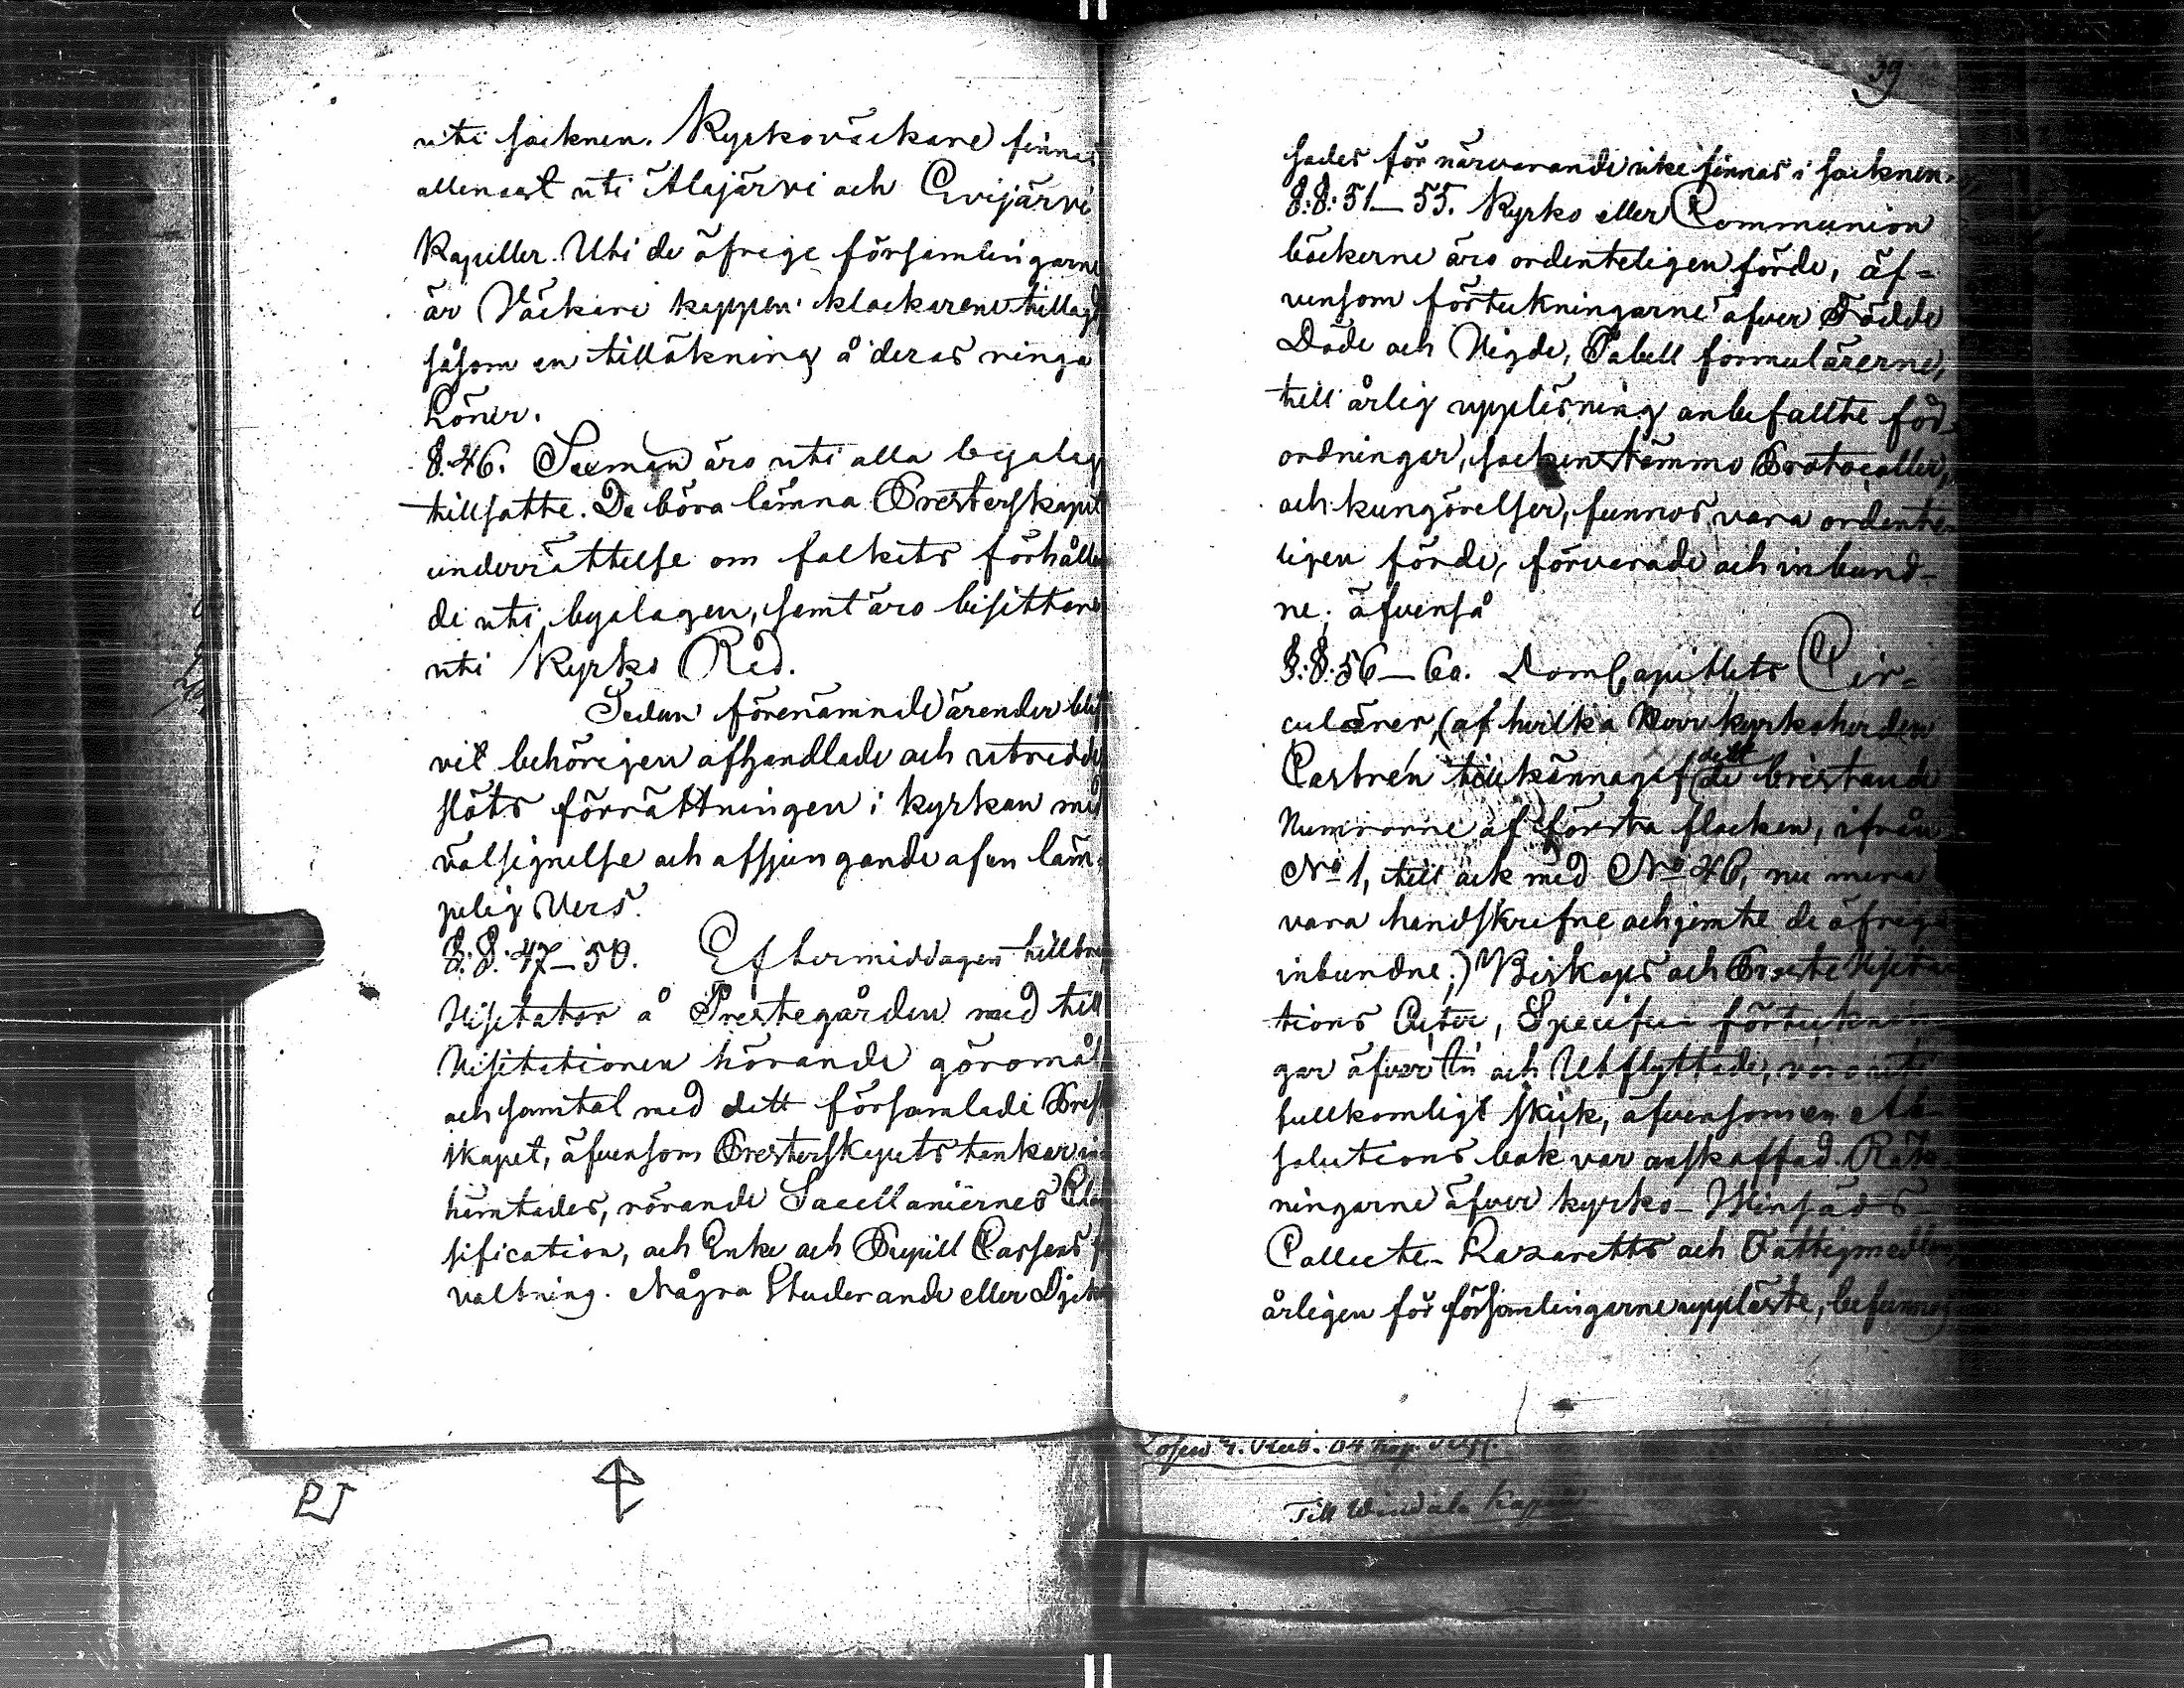 uti socknen. Kyrkoväckare finnas
allenast uti Alajärvi och Evijärvi
Kapeller. Uti de öfrige församlingarne
är Väckare käppen klockarene tillagd
såsom en tillökning å deras ringa
Löner.
§. 46. Sexmän äro uti alla byalag
tillsatte. De böra lemna Presterskapet
underrättelse om folkets förhållan
de uti byalagen, samt äro bisittare
uti Kyrko Råd.
Sedan förenämnde ärender blif
vit behörigen afhandlade och utredde
slöts förrättningen i kyrkan med
välsignelse och afsjungande af en läm-
pelig Vers.
§.§. 47–50. Eftermiddagen tilltog
Visitator å Prestegården med till
Visitationen hörande göromål
och samtal med ditt församlade Prest
skapet, äfvensom Presterskapets tankar in
hemtades, rörande Sacellaniernes Clas
sification, och Enke och Pupill Cassans f
valtning. Några Studerande eller Djekn
39
sades för närvarande icke finnas i socknen.
§.§. 51–55. Kyrko eller Communion
böckerne äro ordenteligen förde, äf-
vensom förteckningarne öfver Födde
Döde och Vigde, Tabell formulärerne,
till årlig uppläsning anbefallte för
ordningar, sockenstämmo Protocoller,
och kungörelser, funnos vara ordente
ligen förde, förvarade och inbund-
ne; äfvenså
§.§. 56–60. DomCapitlets Cir-
culärer, (af hvilka Herr kyrkoherden
Castrén tillkännagaf ditt de bristande
Numrorne af första flocken, ifrån
No 1, till och med No 46, nu mera
vara handskrefne och jemte de öfrige
inbundne;) Biskops och Proste Visita
tions Acter, Specifici förtecknin
gar öfver In och Utflyttade, voro uti
fullkomligt skick, äfvensom en Ab
solutions bok var anskaffad. Räk
ningarne öfver kyrko- Vinsäds
Collecte- Lazaretts och Fattigmedlen,
årligen för församlingarne uppläste, befunnos
Till Windala Kapell
PJ